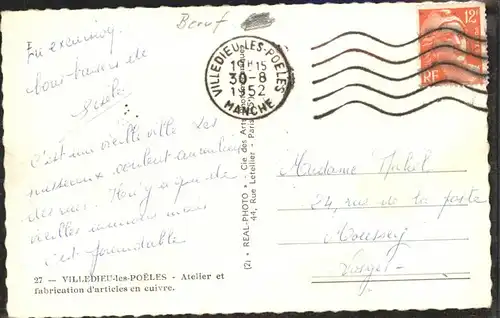 Beruf
En excursion,
bons baisers de
Gisèle
C'est une vieille ville les
ruisseaux coulent au milieu
des rues. Il n'y a que de
vieilles maisons mais
c'est formidable
27 — VILLEDIEU-les-POÊLES - Atelier et
fabrication d'articles en cuivre.
(2) • REAL-PHOTO • Cie des Arts
44, Rue Letellier - Paris
VILLEDIEU-LES-POELES
19H15
30-8
1952
MANCHE
12F
RF
Madame
24, rue de la poste
Moussey
Vosges